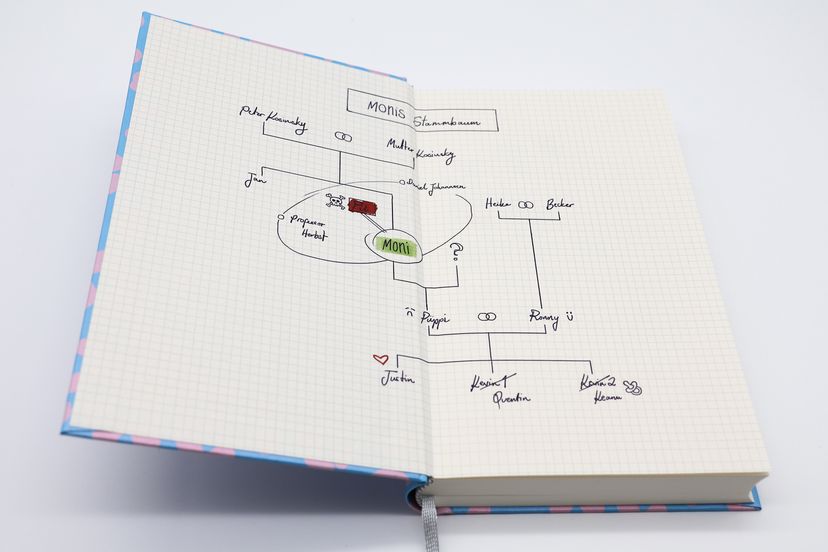 Monis
Stammbaum
Peter Kosinsky
Mutter Kosinsky
Jan
Johannsen
Heike
Becker
Professor
Herbst
Moni
?
Puppi
Ronny
Justin
Kevin 1
Quentin
Keanu